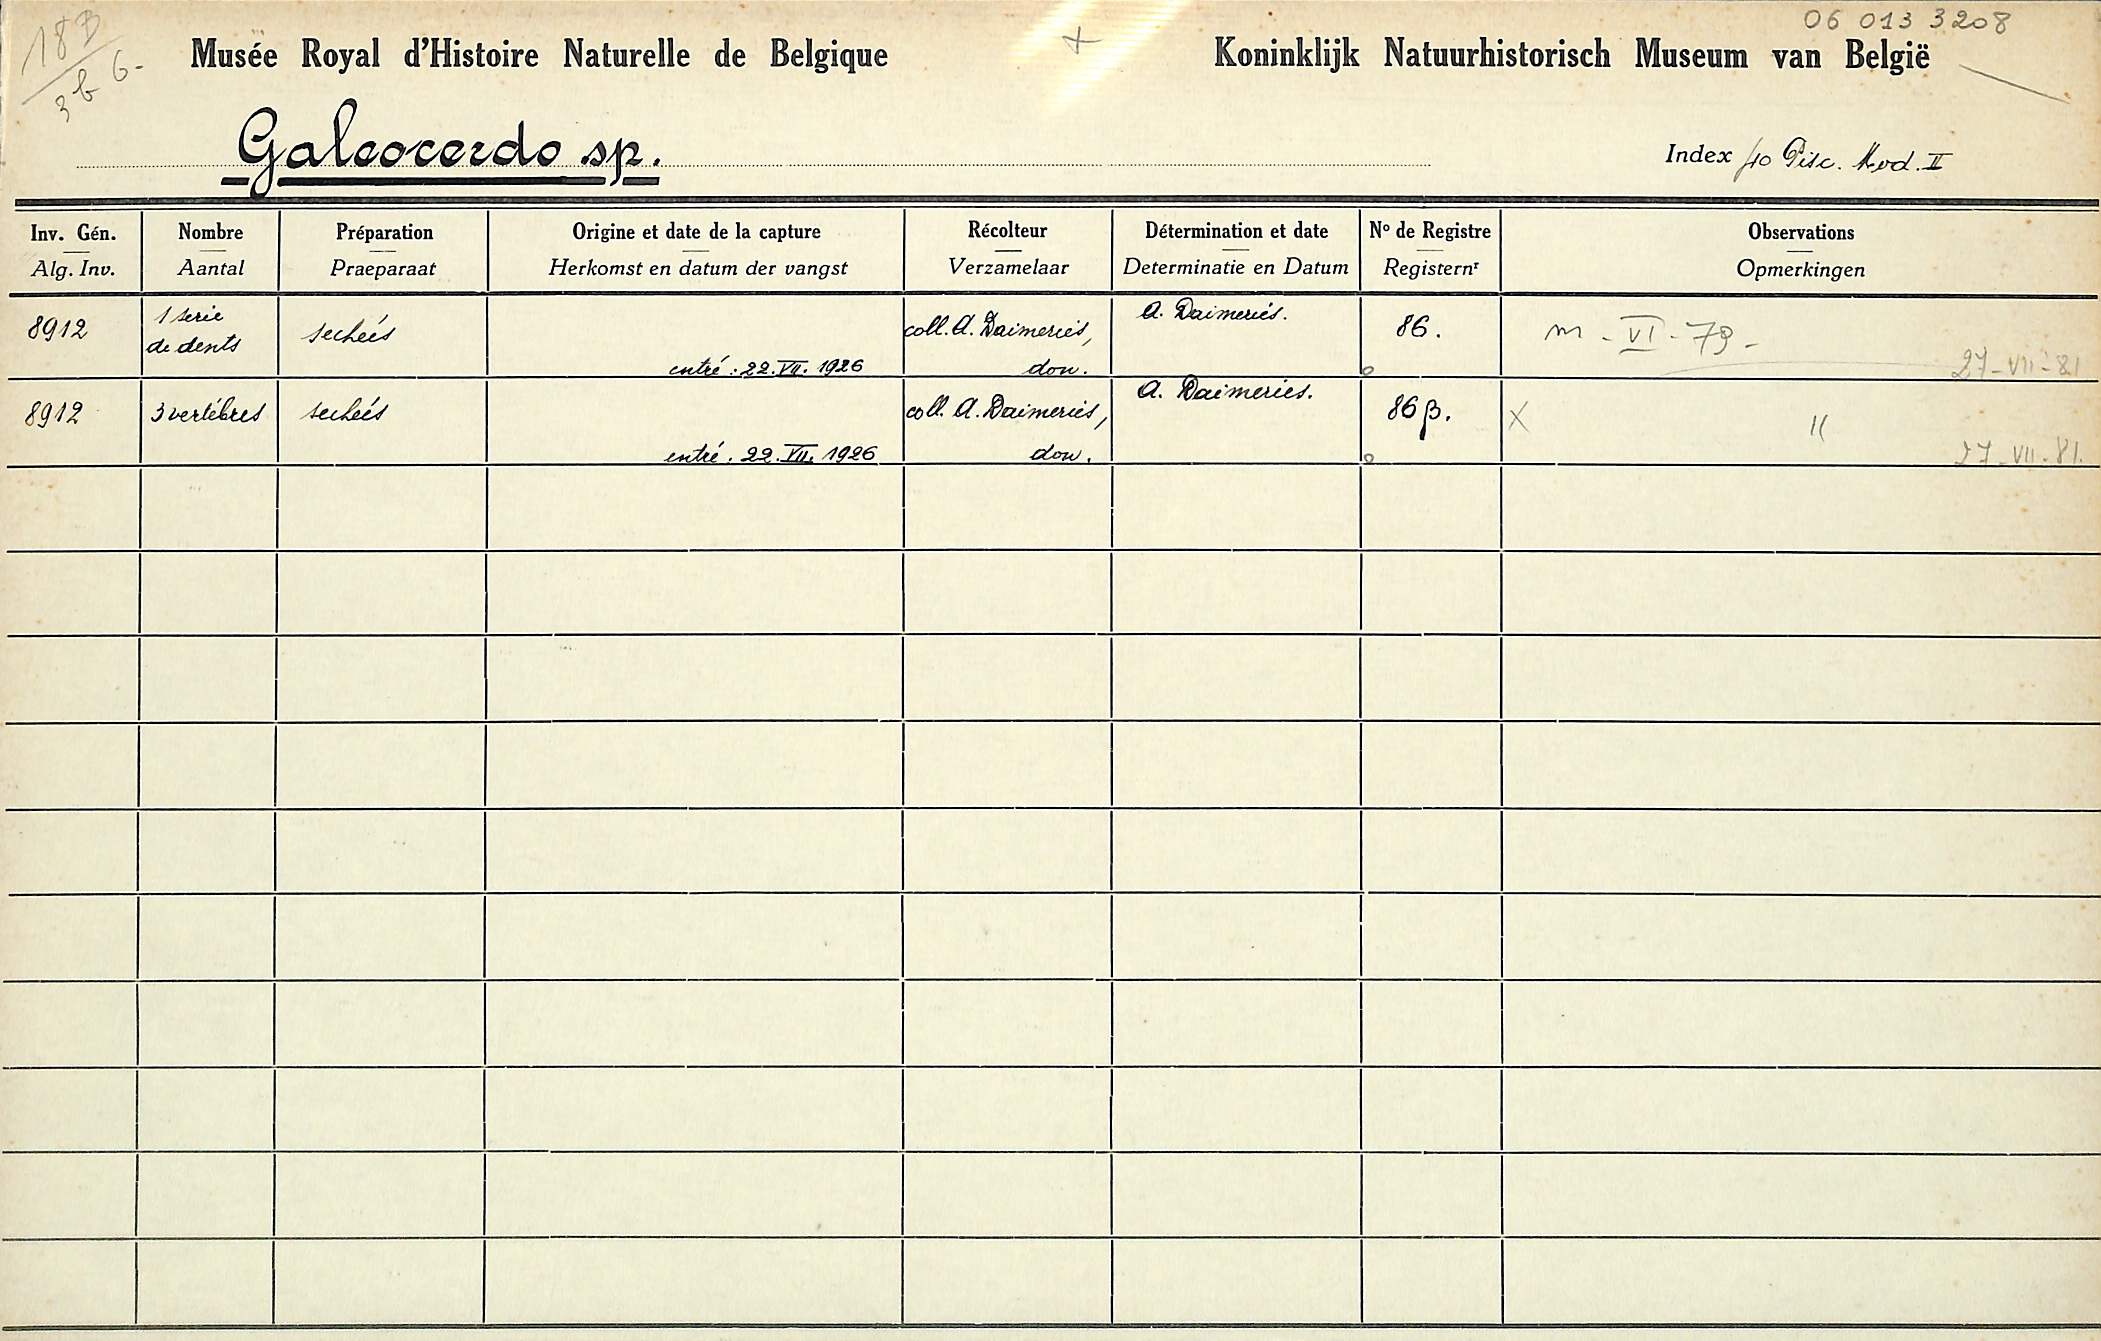 18 D
3 b 6-
+
06 013 3208
Musée Royal d'Histoire Naturelle de Belgique
Koninklijk Natuurhistorisch Museum van België
Galeocerdo sp.
Index 40 Pisc. Mod. II
Inv. Gén. Nombre Préparation Origine et date de la capture Récolteur Détermination et date No de Registre Observations
Alg. Inv. Aantal Praeparaat Herkomst en datum der vangst Verzamelaar Determinatie en Datum Registernr Opmerkingen
8912 1 serie de dents sechées entré : 22. VII. 1926 coll. A. Daimeriés, don. A. Daimeriés. 86. m - VI - 79 - 27-VII-81
8912 3 vertébres sechées entré : 22. VII. 1926 coll. A. Daimeriés, don. A. Daimeries. 86β. X " 27-VII-81.